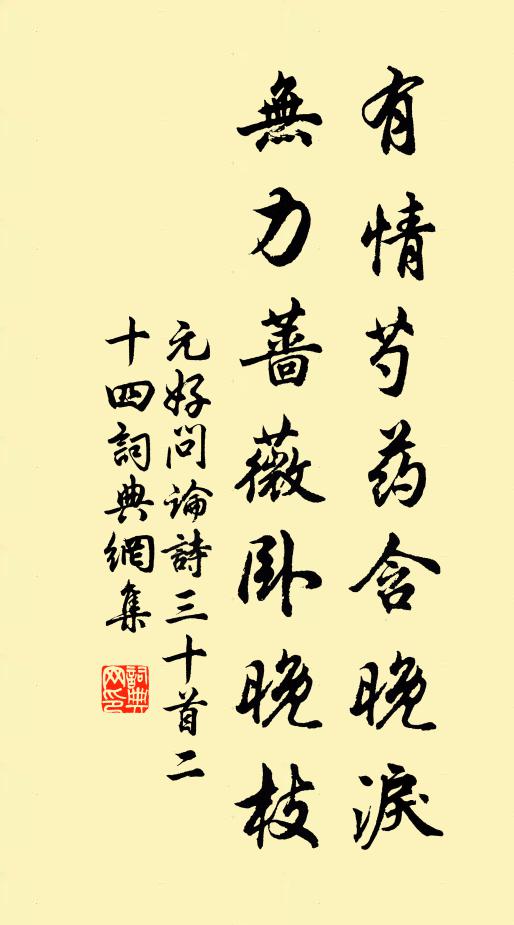 有情芍药含晚淚
無力薔薇卧晚枝
元好问論詩三十首二
十四詞典網集
詞典
网印